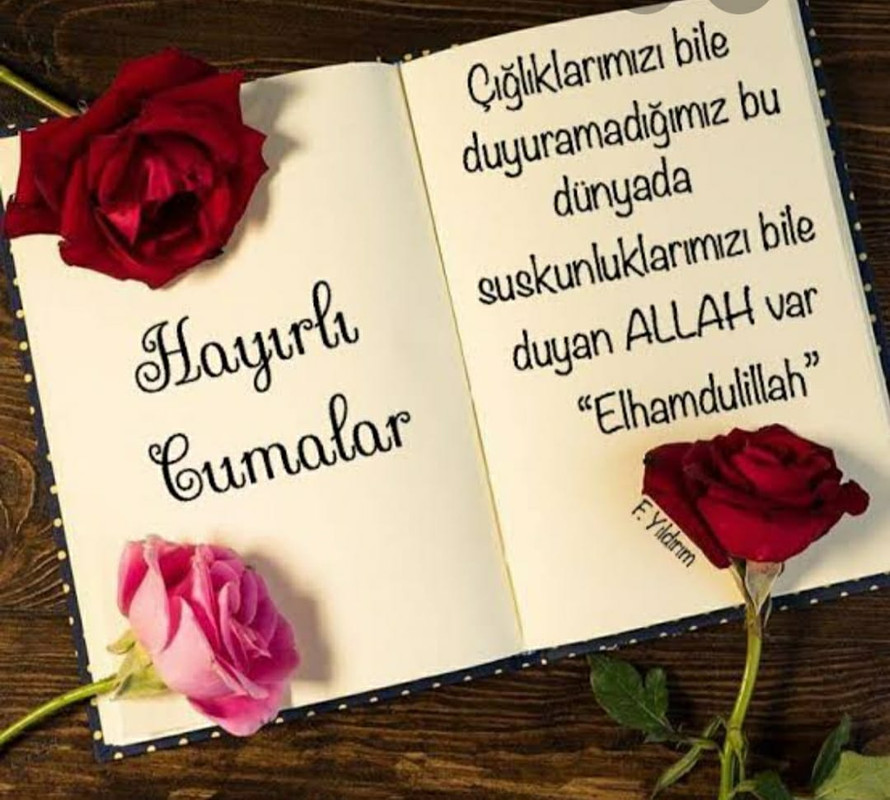 Hayırlı
Cumalar
Çığlıklarımızı bile
duyuramadığımız bu
dünyada
suskunluklarımızı bile
duyan ALLAH var
“Elhamdulillah”
F. Yıldırım